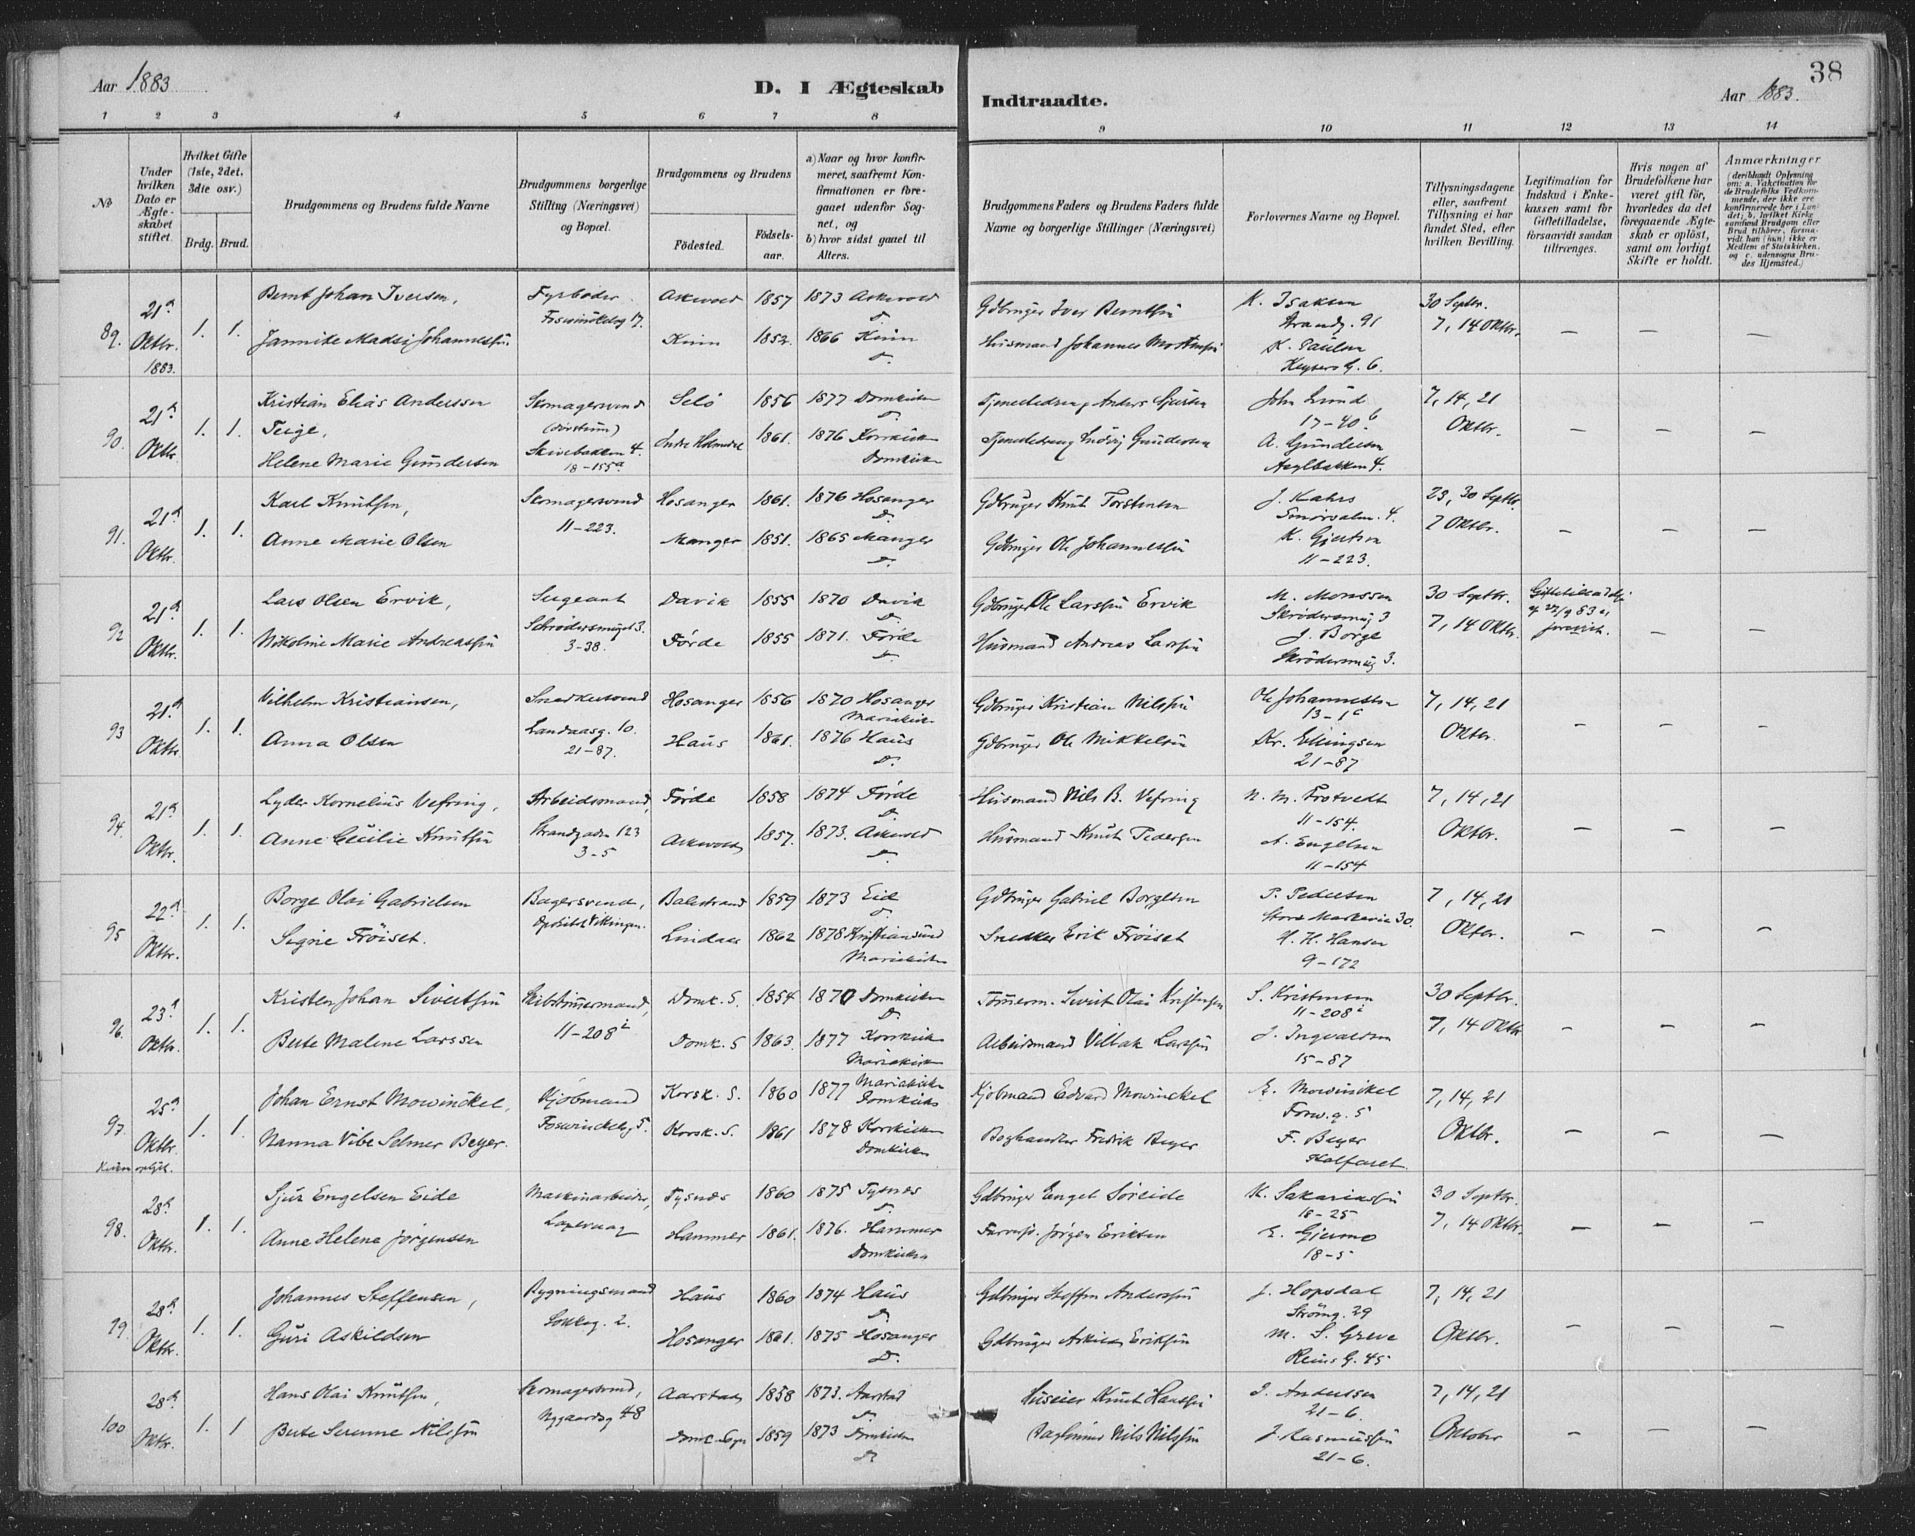 Aar 1883
D. I Ægteskab
Indtraadte.
Aar 1883.
38
1 2 3 4 5 6 7 8 9 10 11 12 13 14
No
Under hvilken Dato er Ægteskabet stiftet.
Hvilket Gifte (1ste, 2det, 3die osv.)
Brdg. Brud.
Brudgommens og Brudens fulde Navne
Brudgommens borgerlige Stilling (Næringsvei) og Bopæl.
Brudgommens og Brudens
Födested.
Födselsaar.
a) Naar og hvor konfirmeret, saafremt Konfirmationen er foregaaet udenfor Sognet, og
b) hvor sidst gaaet til Alters.
Brudgommens Faders og Brudens Faders fulde Navne og borgerlige Stillinger (Næringsvei)
Forlovernes Navne og Bopæl.
Tillysningsdagene eller, saafremt Tillysning ei har fundet Sted, efter hvilken Bevilling.
Legitimation for Indskud i Enkekassen samt for Giftetilladelse, forsaavidt saadan tiltrænges.
Hvis nogen af Brudefolkene har været gift för, hvorledes da det foregaaende Ægteskab er oplöst, samt om lovligt Skifte er holdt.
Anmærkninger (deriblandt Oplysning om: a. Vakcination for de Brudefolks Vedkommende, der ikke ere konfirmerede her i Landet; b. hvilket Kirkesamfund Brudgom eller Brud tilhörer, forsaavidt han (hun) ikke er Medlem af Statskirken, og c. udensogns Brudes Hjemsted.)
89. 21d Oktbr. 1883. 1. 1.
Bernt Johan Iversen, Fyrböder Askevold 1857 1873 Askevold Gdbruger Iver Berntsen K. Isaksen Strandg. 91 30 Septbr.
Jannike Madsi Johannessen. Kinn 1852. 1866 Kinn Husmand Johannes K. Paulsen Keysers G. 6. 7, 14 Oktbr. — — —
90. 21d Oktbr. 1. 1.
Kristian Elias Anderssen Teige, Skomagersvend Selö 1856 1877 Domkirken Anders John Lund 17-40b 7, 14, 21
Helene Marie Gundersen Skivebakken 4. 18-155a Indre Holmedal 1861. 1876 Korskirken Domkirken Gundersen A. Gundersen Asylbakken 4. Oktbr. — — —
91. 21d Oktbr. 1. 1.
Karl Knutsen, Skomagersvend 11-223. Hosanger 1861. 1876 Hosanger Gdbruger Knut Torstensen J. Kahrs 23, 30 Septbr.
Anne Marie Olsen Manger 1851. 1865 Manger Gdbruger Ole Johannessen K. Gjertsen 11-223. 7 Oktbr. — — —
92 21d Oktbr. 1. 1.
Lars Olsen Ervik, Sergeant Davik 1855 1870 Davik Gdbruger Ole Larssen Ervik M. Monssen Skrödersmug 3 30 Septbr.
Nikoline Marie Andreassen Schrödersmuget 3. 3-38. Förde 1855 1871. Förde Husmand Andreas Larssen J. Borge Skrödersmug 3. 7, 14 Oktbr. — —
93 21d Oktbr. 1. 1.
Vilhelm Kristiansen, Snedkersvend Hosanger 1856 1870 Hosanger Mariakirken Gdbruger Kristian Nilssen Ole Johannessen 13-1c 7, 14, 21
Anna Olsen Landaasg. 10. 21-87. Haus 1861. 1876 Haus Gdbruger Ole Mikkelsen Kr. Ellingsen 21-87 Oktbr. — — —
94. 21d Oktbr. 1. 1.
Lyder Kornelius Vefring, Arbeidsmand, Förde 1858 1874 Förde Husmand Nils B. Vefring N. M. Trotvedt 11-154. 7, 14, 21
Anne Cecilie Knutsen Strandgaden 123 3-5 Askevold 1857. 1873. Askevold Husmand Knut Pedersen A. Engelsen 11-154 Oktbr. — — —
95 22d Oktbr. 1. 1.
Borge Olai Gabrielsen Bagersvend, Balestrand 1859 1873 Eid Gdbruger Gabriel Borgesen P. Pedersen Store Markevei 30. 7, 14, 21
Signe Fröiset. Lindaas 1862 1878 Kristiansund Mariakirken Snedker Erik Fröiset H. H. Hansen 9-172 Oktbr. — — —
96. 23d Oktbr. 1. 1.
Kristen Johan Sivertsen Skibstömmermand, 11-208i Domk. S. 1854 1870 Domkirken Tömerm. Sivert Olai Kristensen S. Kristensen 11-208i 30 Septbr.
Berte Malene Larssen Domk. S 1863. 1877 Korskirken Mariakirken Arbeidsmand Larssen J. Ingvaldsen 15-87 7, 14 Oktbr — — —
97. 25d Oktbr. 1. 1.
Johan Ernst Mowinckel, Kjöbmand Korsk. S. 1860 1877 Mariakirken Domkirken Kjöbmand Edvard Mowinckel E. Mowinckel 7, 14, 21
Nanna Vibe Selmer Beyer. Foswinckelsg 5. Korsk. S. 1861 1878 Korskirken Domkirken Boghandler Fredrik Beyer F. Beyer Kalfaret. Oktbr. — — —
98. 28d Oktbr. 1. 1.
Sjur Engelsen Eide Maskinarbeider, Tysnes 1860 1875 Tysnes Gdbruger Engel Söreide K. Sakariassen 18-25 30 Septbr.
Anne Helene Jörgensen Laxevaag Hammer 1861. 1876. Hammer Domkirken Jörgen Eriksen E. Gjermo 18-5 7, 14 Oktbr. — — —
99. 28d Oktbr. 1. 1.
Johannes Steffensen, Rygningsmand Haus 1860 1874 Haus Gdbruger Steffen Anderssen J. Hopsdal Strömg. 29 7, 14, 21
Guri Askildsen Hosanger 1861. 1875 Hosanger Gdbruger Askild Eriksen M. S. Greve Reins G. 45 Oktbr. — — —
100 28d Oktbr. 1. 1
Hans Olai Knutsen, Skomagersvend, Aarstad 1858 1873. Aarstad Huseier Knut Hanssen I. Anderssen 21-6. 7, 14, 21
Berte Serenne Nilssen Nygaardsg 48 1859 1873 Domkirken Daglönner Nils Nilssen J. Rasmussen 21-6. Oktober — — —